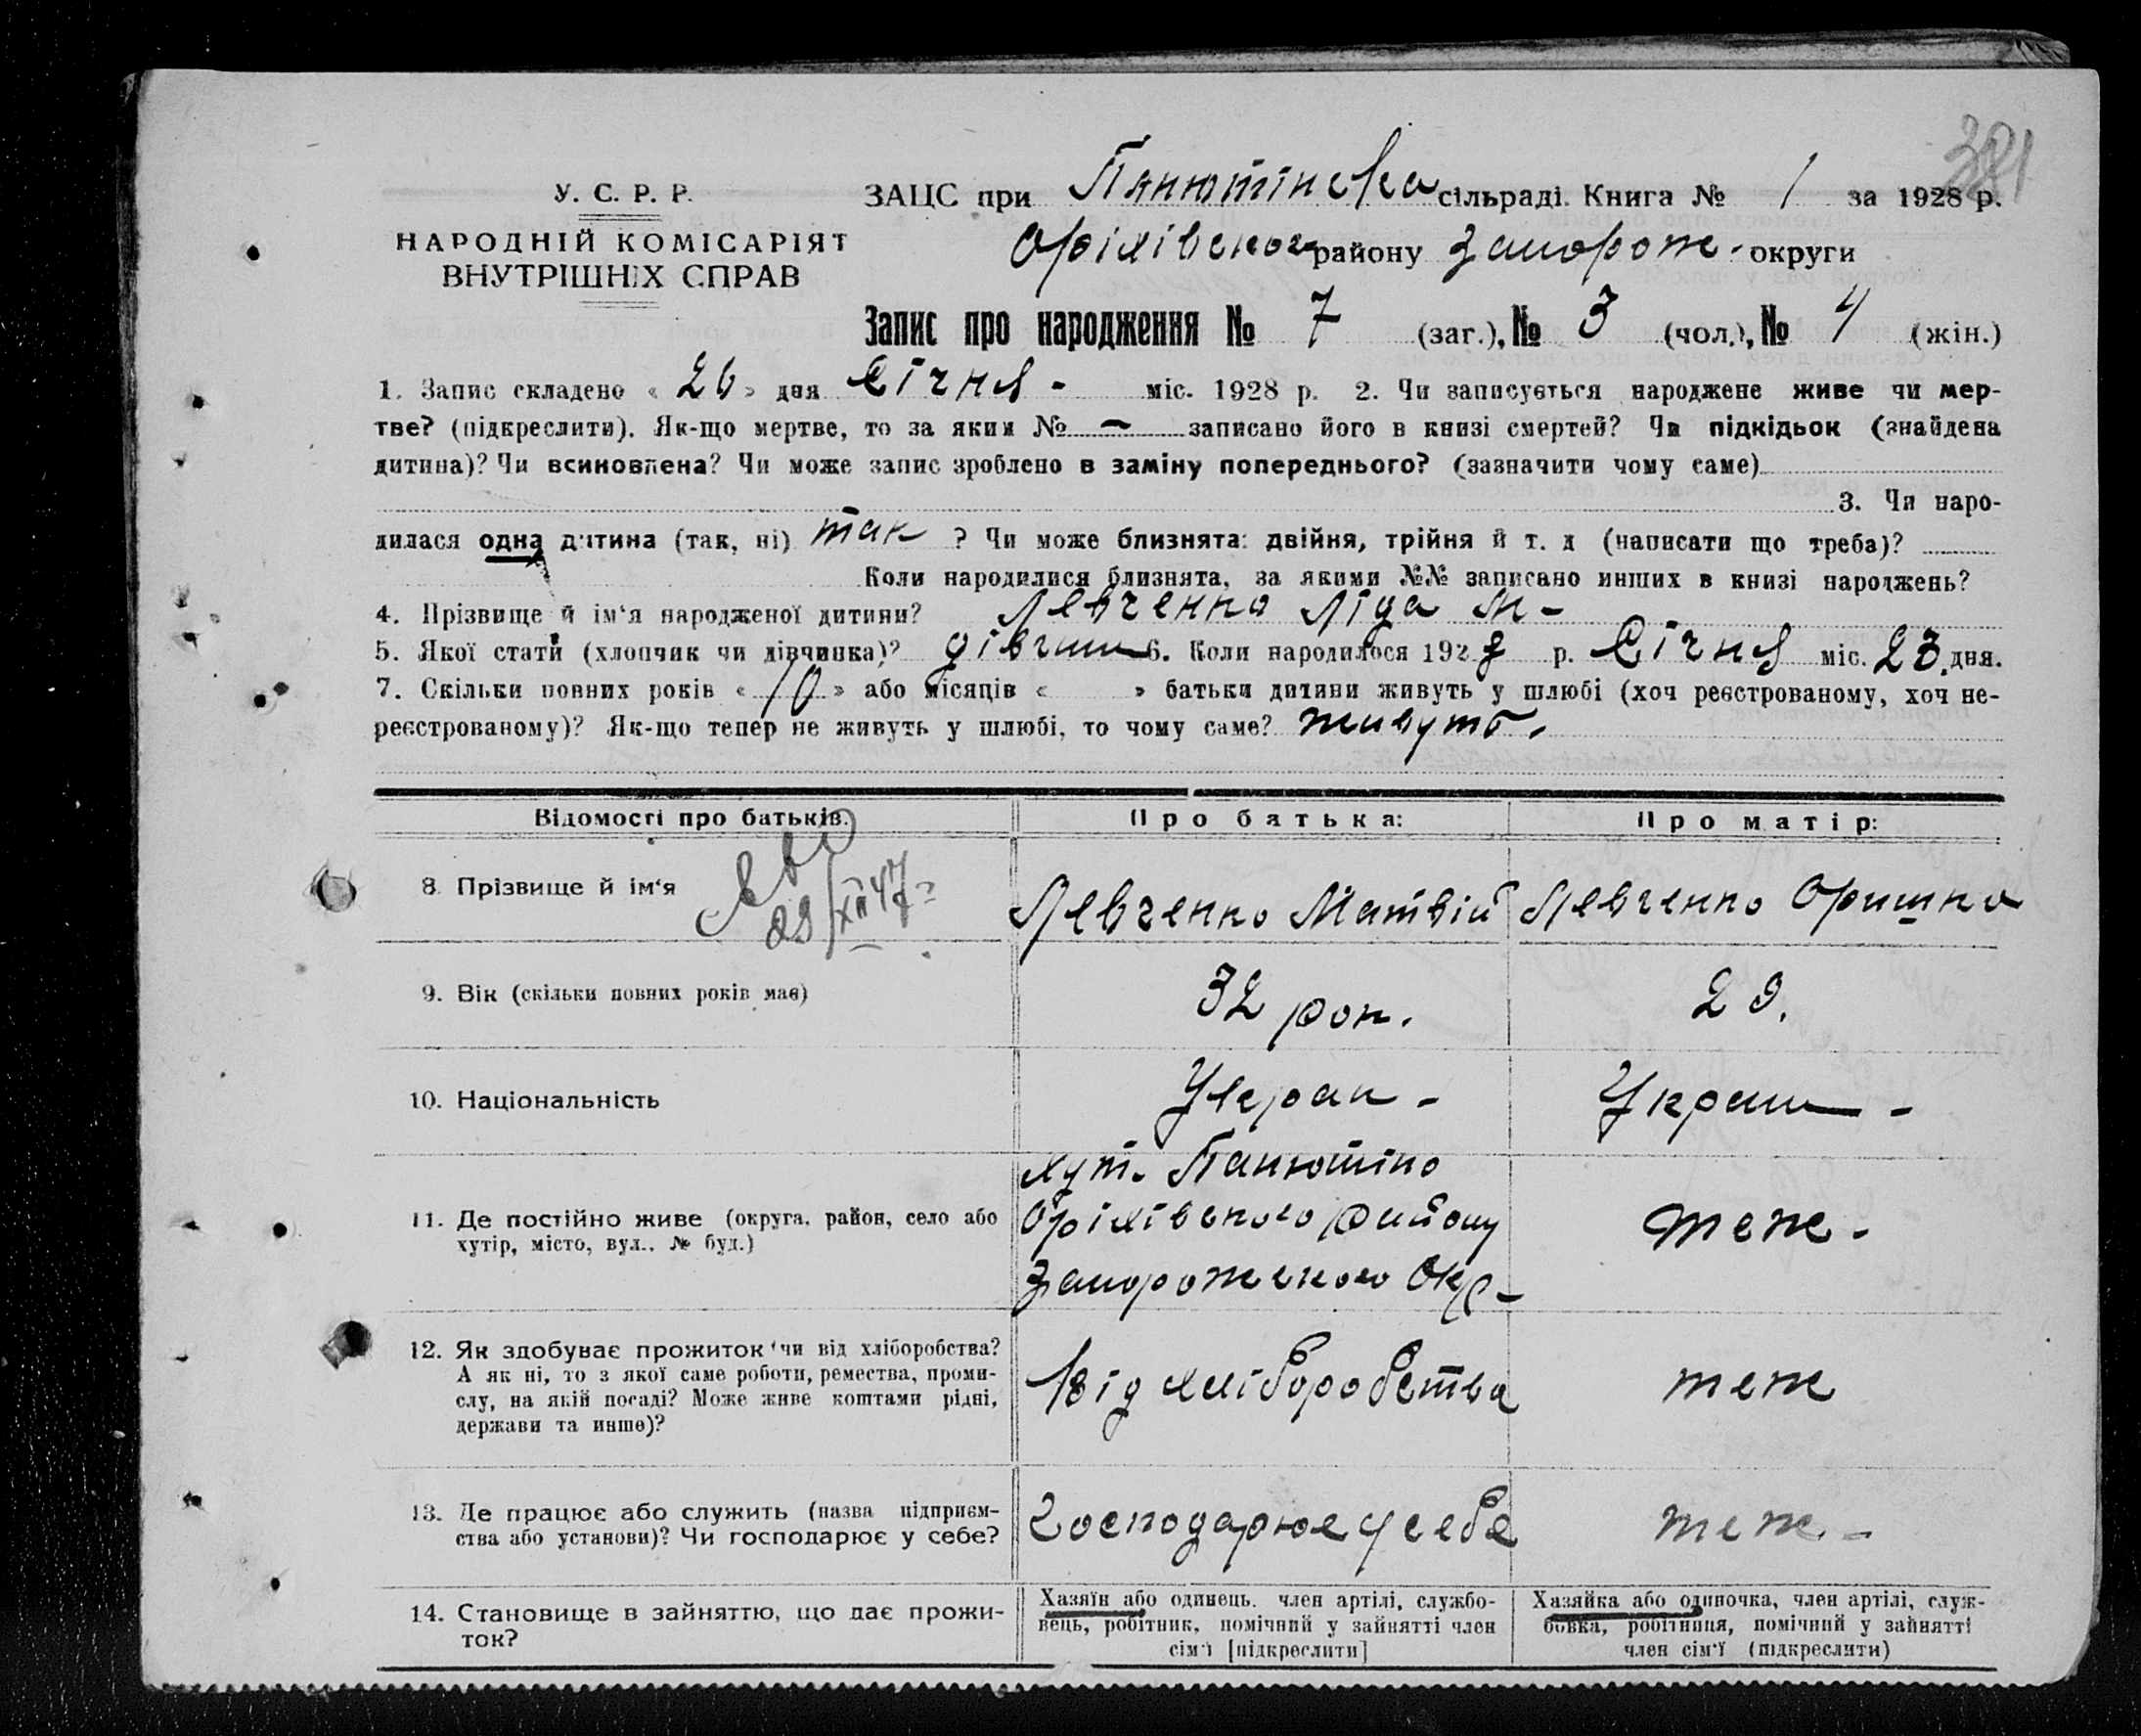 381
У. С. Р. Р.
НАРОДНІЙ КОМІСАРІЯТ
ВНУТРІШНІХ СПРАВ
ЗАЦС при Панютінска сільраді. Книга № 1 за 1928 р.
Оріхівског району Запорож- округи
Запис про народження № 7 (заг.), № 3 (чол.), № 4 (жін.)
1. Запис складено « 26 » дня Січня - міс. 1928 р. 2. Чи записується народжене живе чи мер-
тве? (підкреслити). Як-що мертве, то за яким № — записано його в книзі смертей? Чи підкідьок (знайдена
дитина)? Чи всиновлена? Чи може запис зроблено в заміну попереднього? (зазначити чому саме)
3. Чи наро-
дилася одна дитина (так, ні) так ? Чи може близнята: двійня, трійня й т. д (написати що треба)?
Коли народилися близнята, за якими №№ записано инших в книзі народжень?
4. Прізвище й ім'я народженої дитини? Левченко Ліда М-
5. Якої статі (хлопчик чи дівчинка)? дівчин 6. Коли народилося 1928 р. Січня міс. 23. дня.
7. Скільки повних років « 10 » або місяців « » батьки дитини живуть у шлюбі (хоч реєстрованому, хоч не-
реєстрованому)? Як-що тепер не живуть у шлюбі, то чому саме? живуть.
Відомості про батьків. Про батька: Про матір:
8. Прізвище й ім'я Левченко Матвій Левченко Оришка
29/XII 47
9. Вік (скільки повних років має) 32 рок. 29.
10. Національність Украи - Украин -
11. Де постійно живе (округа, район, село або
хутір, місто, вул., № буд.)
хут. Панютіно
Оріхівского району
Запорожского Окр-
теж-
12. Як здобуває прожиток (чи від хліборобства?
А як ні, то з якої саме роботи, ремества, проми-
слу, на якій посаді? Може живе коштами рідні,
держави та инше)?
Від хліборобства теж
13. Де працює або служить (назва підприєм-
ства або установи)? Чи господарює у себе?
Господарює у себе теж. -
14. Становище в зайняттю, що дає прожи-
ток?
Хазяїн або одинець. член артілі, службо-
вець, робітник, помічний у зайнятті член
сім'ї [підкреслити]
Хазяйка або одиночка, член артілі, служ-
бовка, робітниця, помічний у зайнятті
член сім'ї (підкреслити)